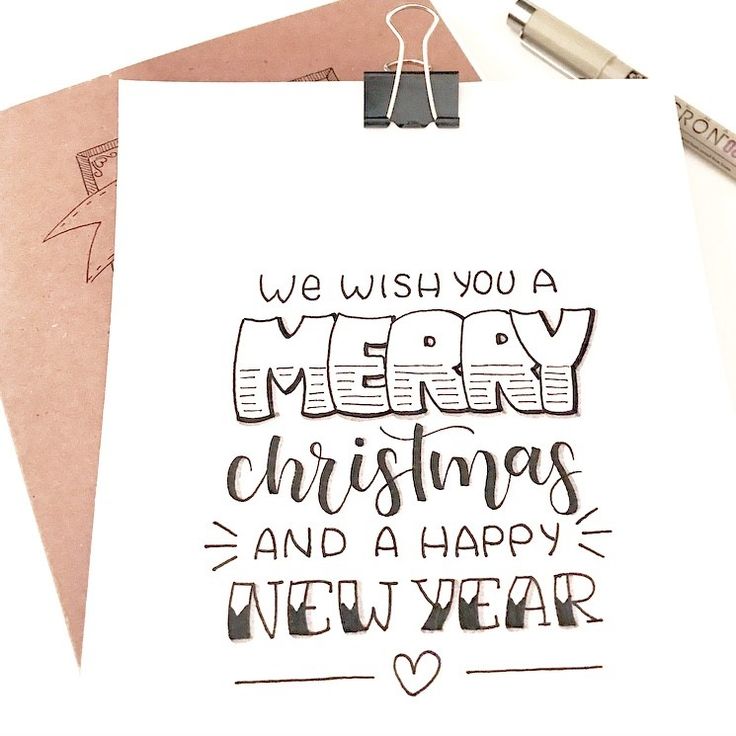 We WISH YOU A
MERRY
christmas
AND A HAPPY
NEW YEAR